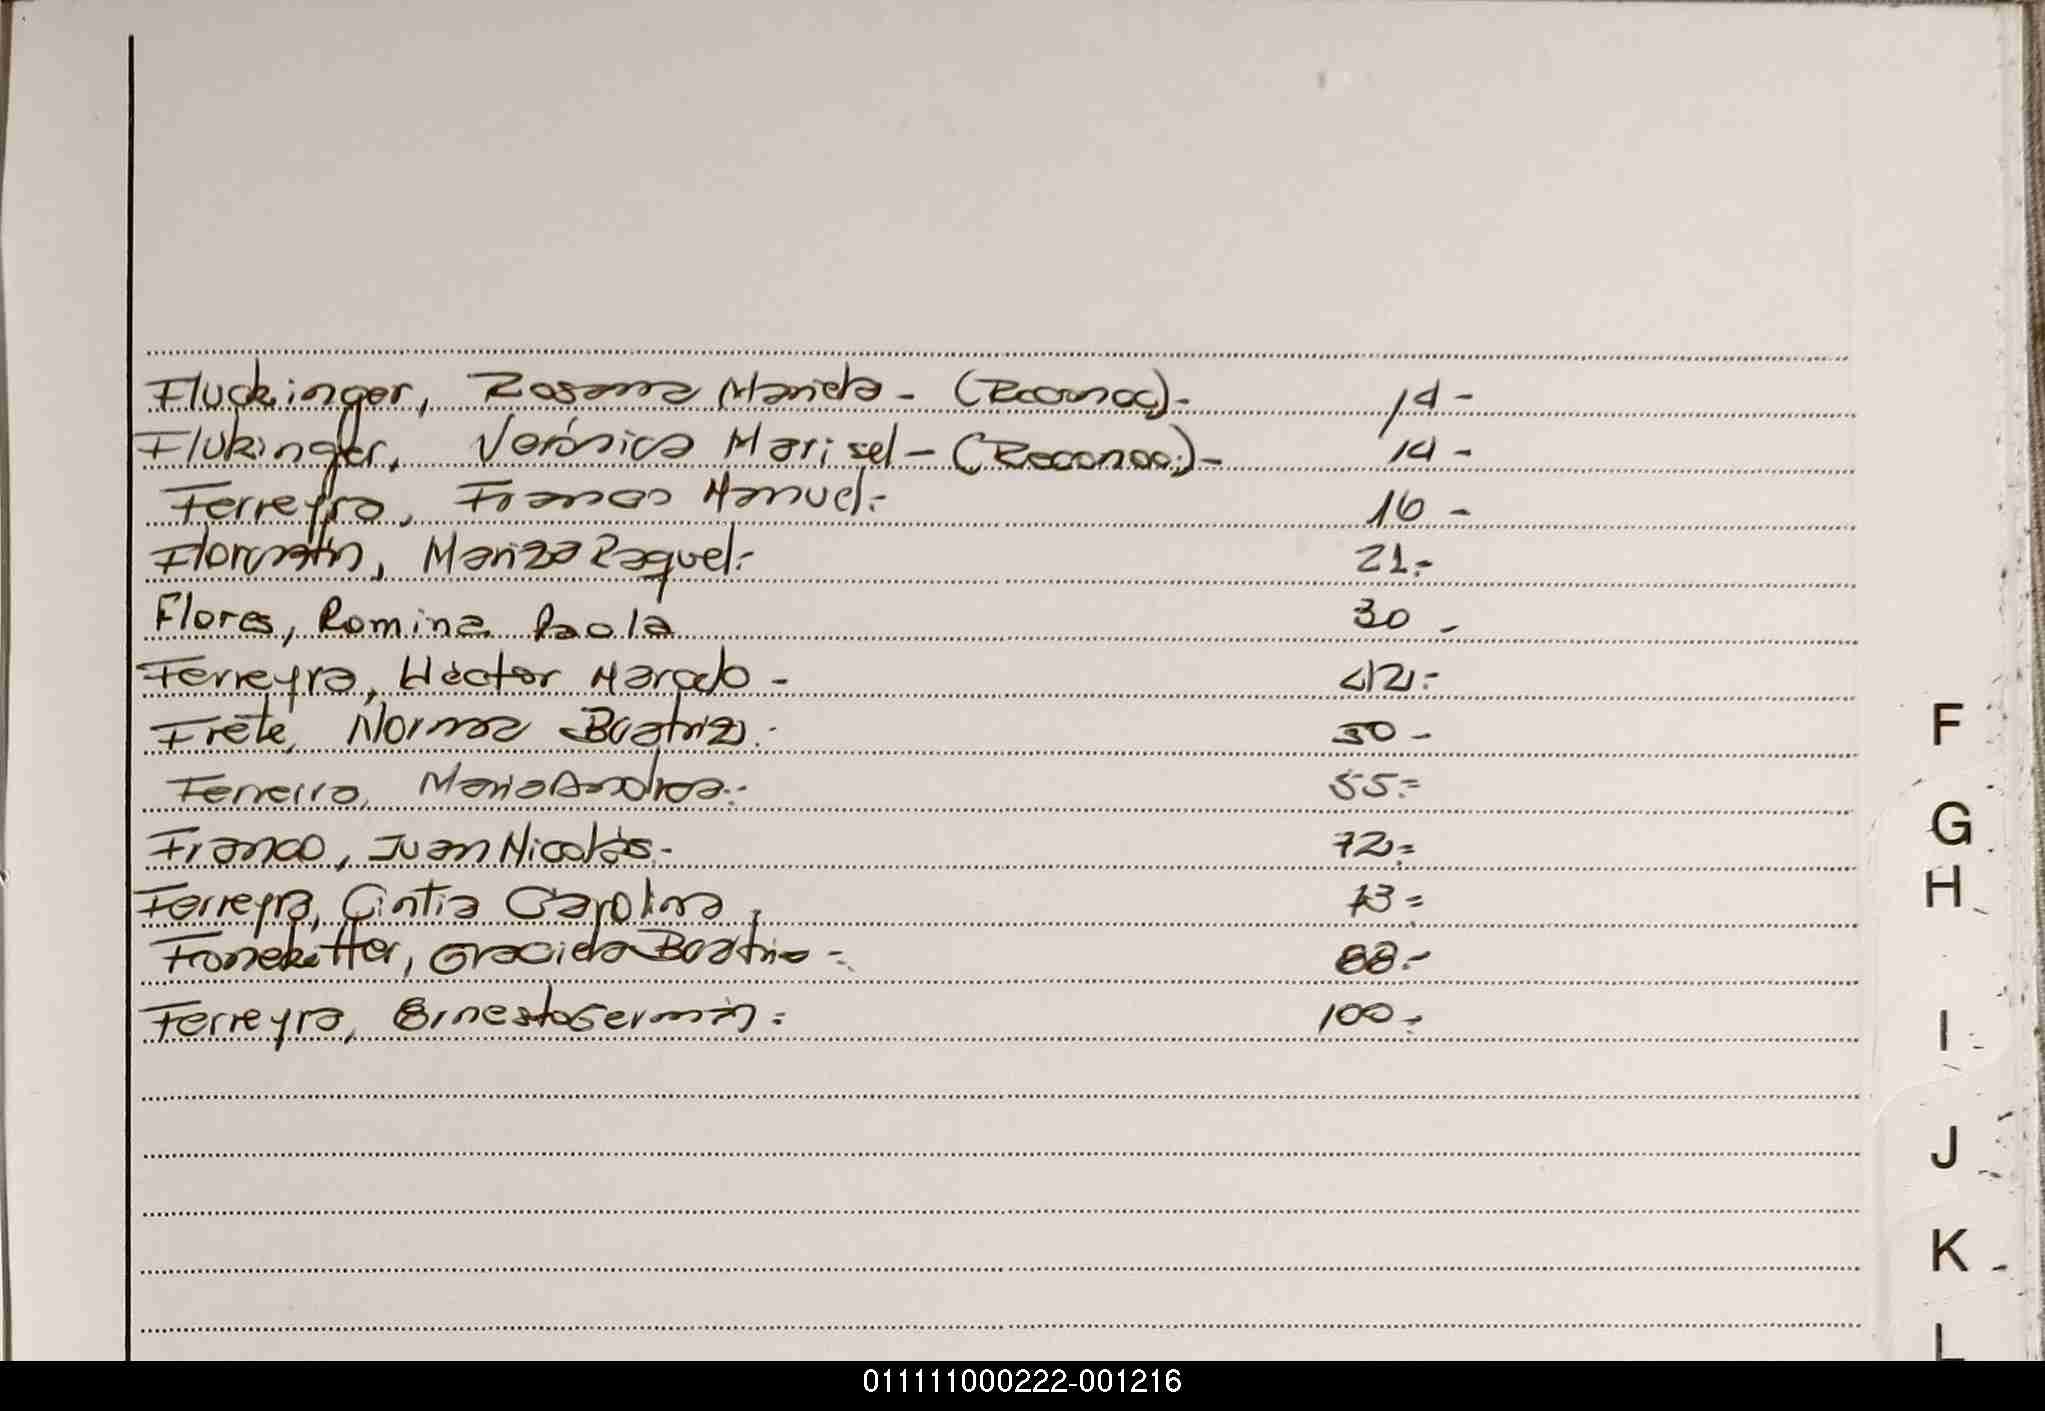 Fluckinger, Rosana Mariela - (Reconoc).- 14 -
Flukinger, Verónica Marisel - (Reconoc.) - 14 -
Ferreyra, Franco Manuel.- 16 -
Mariza Raquel.- 21.-
Flores, Romina Paola 30 -
Ferreyra, Héctor Marcelo - 42.-
Frete, Norma Beatriz.- 50 -
Ferreira, Maria Andrea.- 55.-
Franco, Juan Nicolás.- 72.-
Ferreyra, Cintia Carolina. 73 =
Graciela Beatriz - 88.-
Ferreyra, Ernesto Germán. 100.-
F
G
H
I
J
K
L
011111000222-001216